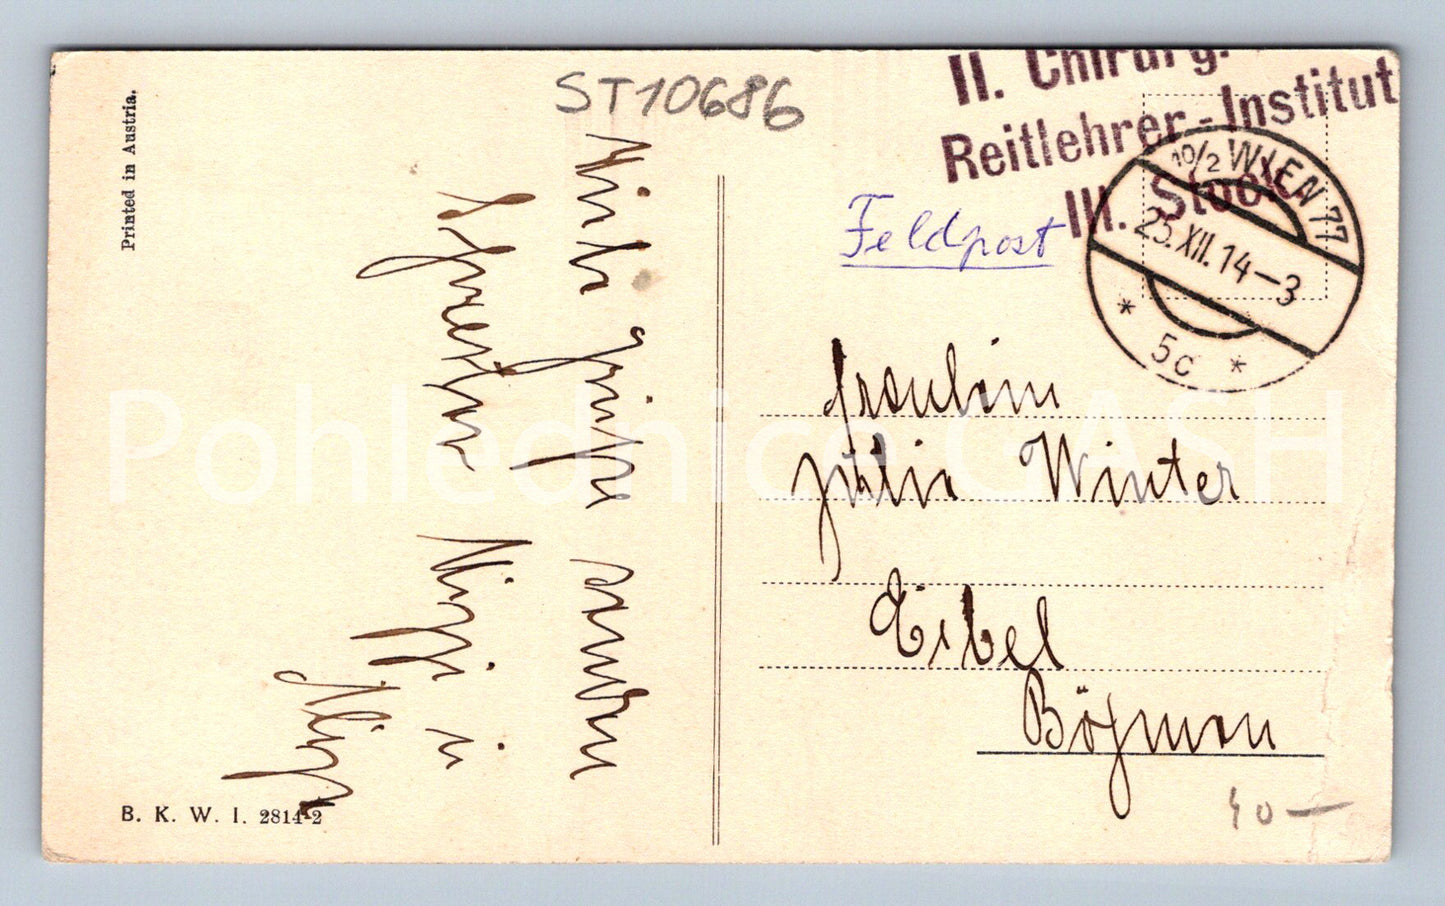 Printed in Austria.
ST10686
II. Chirurg.
Reitlehrer-Institut
III. Stock
Feldpost
10/2 WIEN 77
25.XII.14-3
* 5c *
Fräulein
Julia Winter
Eibel
Böhmen
40-
Viele Grüße senden
Mizzi u
B. K. W. I. 2814-2
Pohlednice GASH